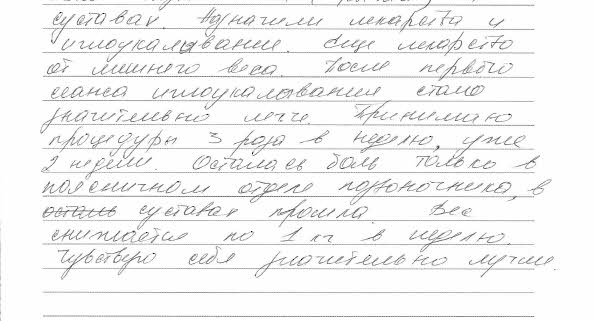 суставах. Назначили лекарства и
иглоукалывание. Еще лекарство
от лишнего веса. После первого
сеанса иглоукалывания стало
значительно легче. Принимаю
процедуры 3 раза в неделю, уже
2 недели. Осталась боль только в
поясничном отделе позвоночника, в
осталь суставах прошла. Вес
снижается по 1 кг в неделю.
Чувствую себя значительно лучше.